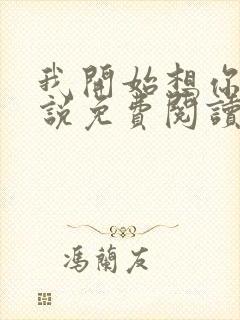 我開始想你
說免費閱讀
馮蘭友